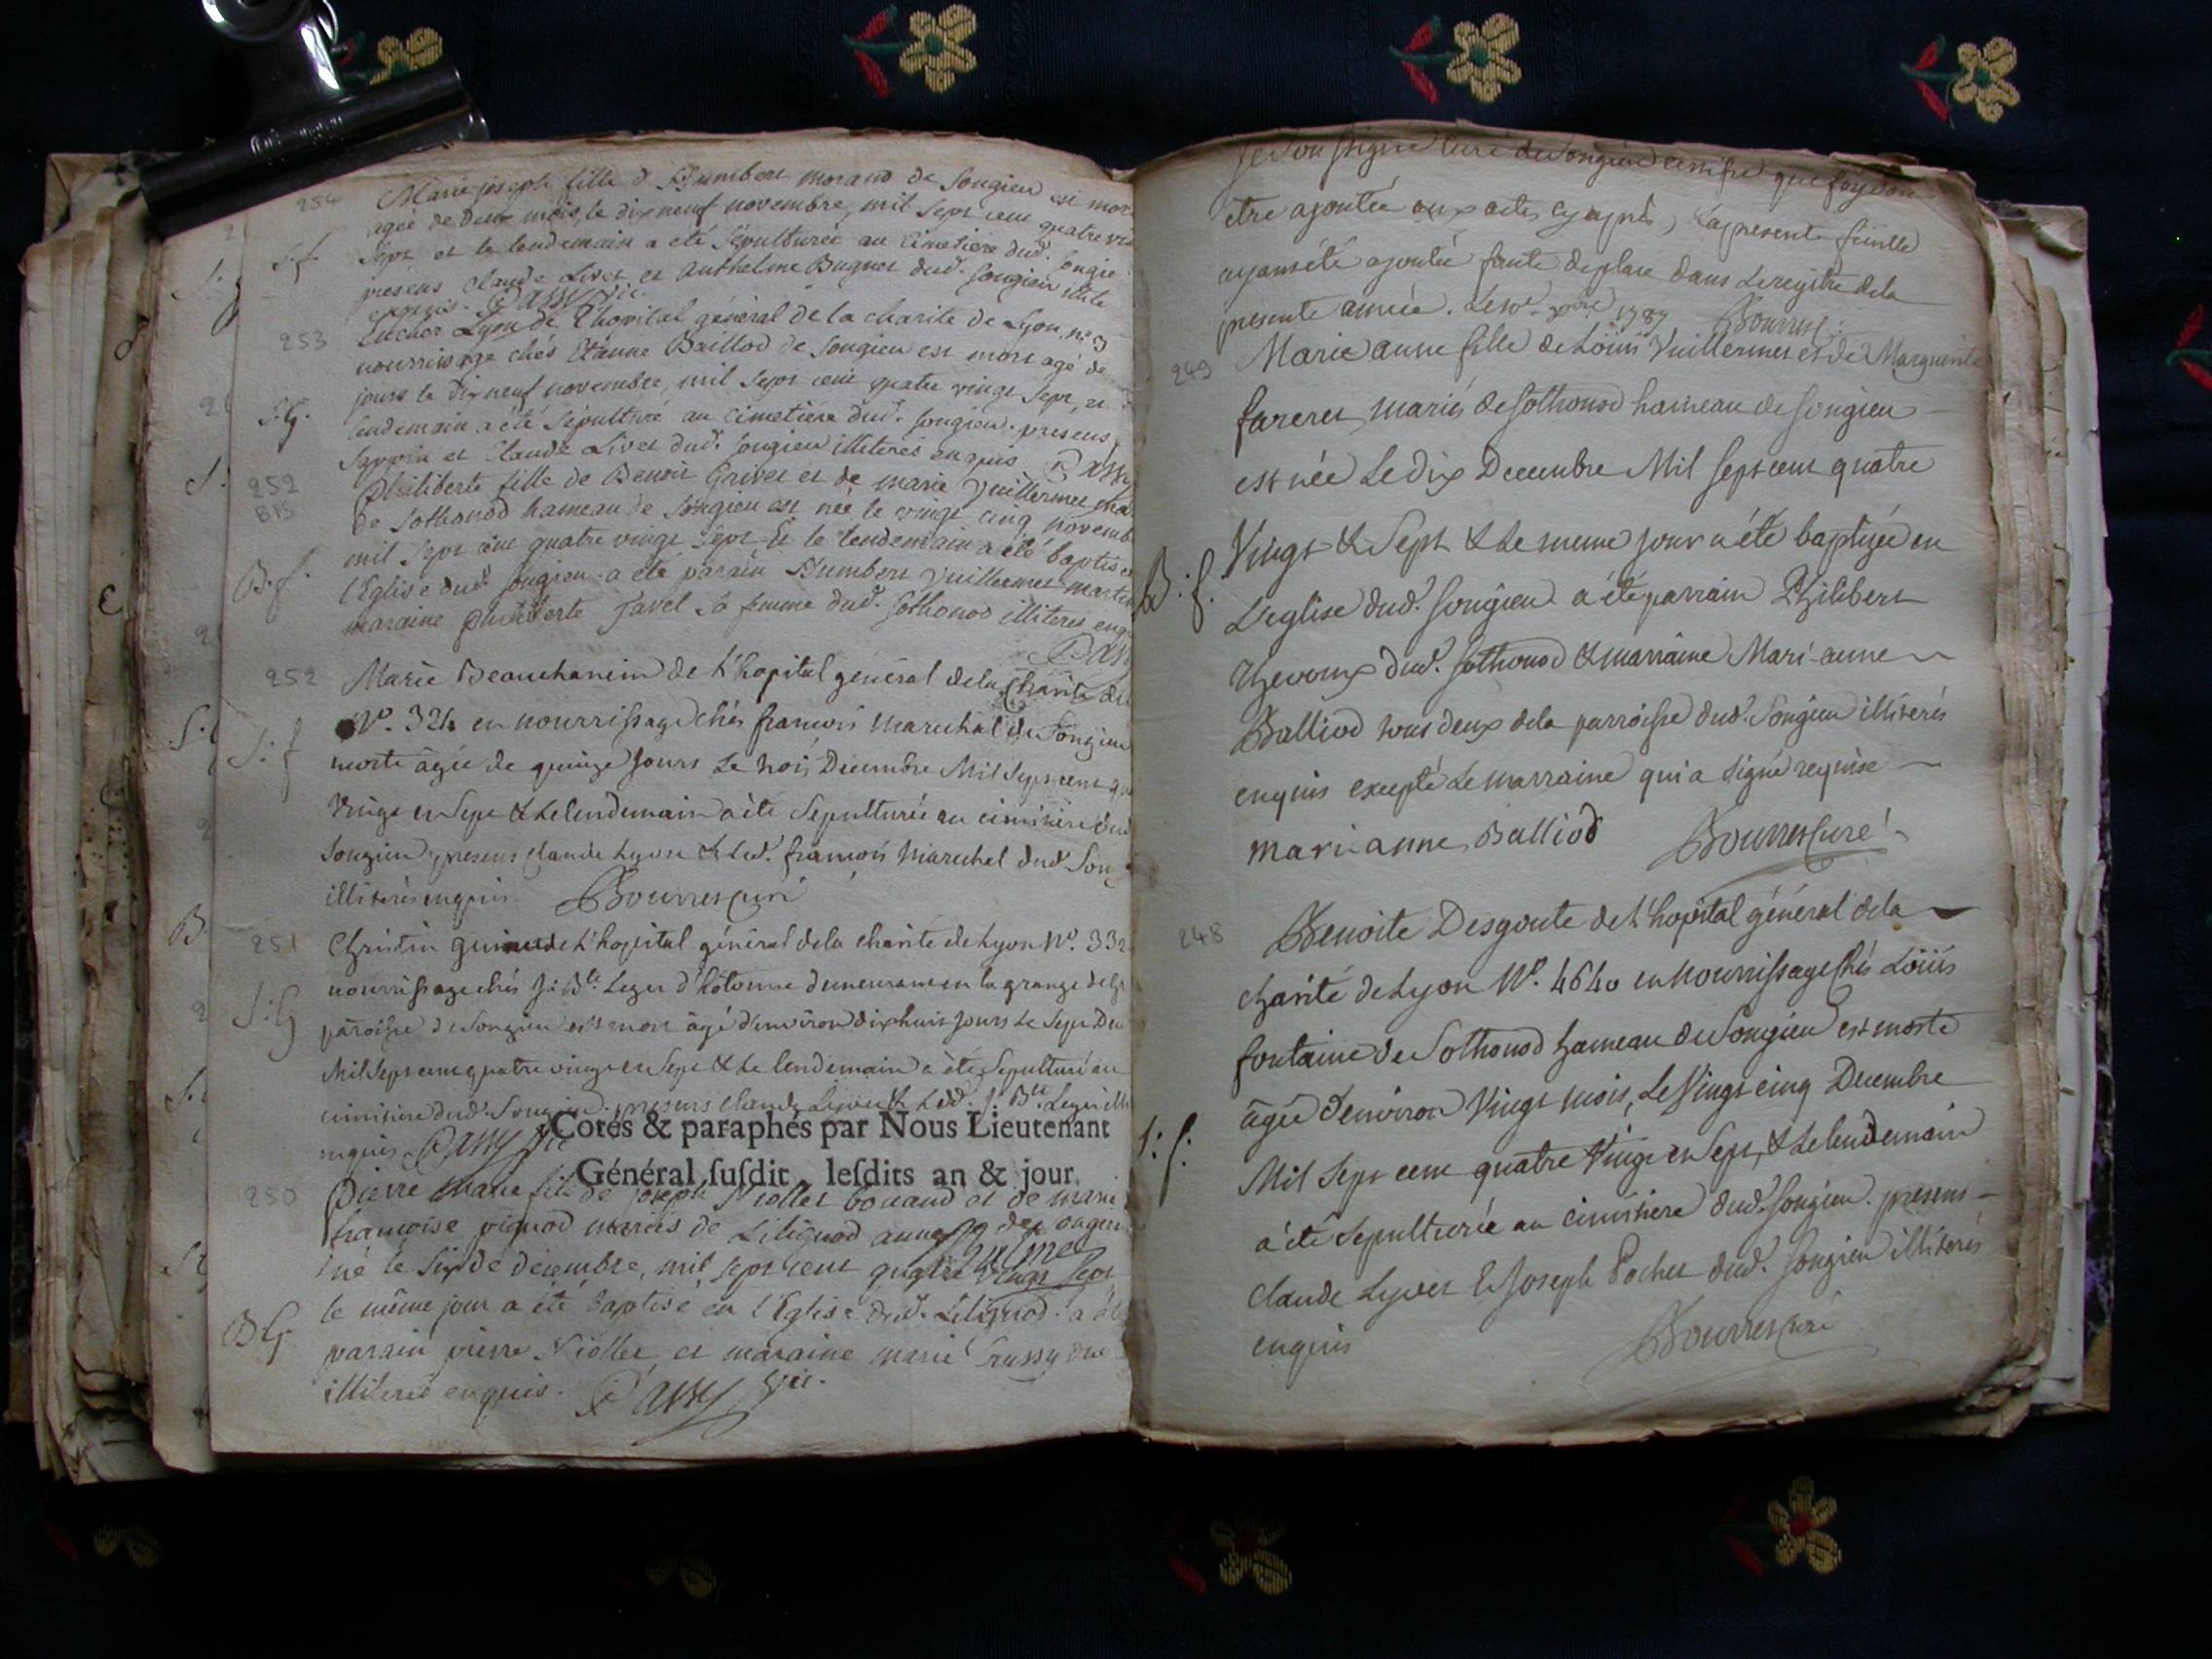 254
Marie joseph fille d'Humbert morand de Songieu est mor
agée de Deux mois, le dix neuf novembre, mil sept cent quatre vin
S: f.
sept et le lendemain a eté sépulturée au cimetière dud. songie
presens Claude Livet et Anthelme Bugnet dud. songieu illite
enquis. Passy vic.
253
Lucher Lyon de l'hopital général de la charite de Lyon, n.o 3
nourrissage chés Etienne Baillod de songieu est mort agé de
jours le dix neuf novembre, mil sept cent quatre vingt sept, et
S: G.
lendemain a été sépulturé au cimetière dud. songieu. presens
et Claude Livet dud. songieu illiterés enquis Passy
252
BIS
Philiberte fille de Benoit Grivet et de marie Vuillermet ma
de Sothonod hameau de songieu est née le vingt cinq novemb
mil sept cent quatre vingt sept Et le lendemain a été baptisé
B. f.
l'Eglise dud. songieu. a été parain Humbert Vuillermet martin
maraine philiberte Javel sa femme dud. Sothonod illiteres enq
Pass
252
Marie Beauchanin de l'hopital general de la Charité de
N.o 324 en nourrissage chés francois Marechal de Songieu
S: f
morte âgée de quinze jours Le trois Decembre Mil Sept cent qu
Vingt en Sept & Le lendemain a été Sepulturée au cimitiere dud
Songieu, presens Claude Lyvet & Led. francois Marechal dud. Song
illiterés enquis Bourret Curé
251
Christin guinn de l'hopital général de la charité de Lyon N.o 332
nourrissage chés J: B.te Leger d'hotonne demeurant en la grange de
S: G
paroisse de Songieu est mort âgé d'environ dix huit jours Le Sept De
Mil Sept cent quatre vingt en Sept & Le lendemain a été Sepulturé au
cimitiere dud. Songieu. presens Claude Lyvet & Led. J: B.te Leger illi
enquis Passy vic
Cotés & paraphés par Nous Lieutenant
Général susdit, lesdits an & jour.
250
Pierre Marie fils de joseph Niollet et de marie
francoise pignod mariés de Lilignod annexe de songieu
né le six de decembre, mil sept cent quatre vingt sept
le même jour a été baptisé en l'Eglise dud. Lilignod. a été
B G.
parain pierre Niollet, et maraine marie Trassy du
illiterés enquis. Passy vic.
Je soussigné curé de Songieu certifie que foy doit
être ajoutée aux actes cy après, La presente feuille
ayant été ajoutée faute de place dans Le registre de la
presente année. 1787 Bourret
249
Marie anne fille de Loüis Vuillermet et de Marguerite
fureret, mariés de Sothonod hameau de Songieu
est née Le dix Decembre Mil Sept cent quatre
Vingt & Sept & Le meme jour a été baptizée en
B: f.
L'eglise dud. Songieu a été parrain Philibert
Thevoux dud. Sothonod & marraine Mari-anne
Balliod tous deux de la parroisse dud. Songieu illiterés
enquis excepté Le marraine qui a Signé requise
mari-anne Balliod Bourret Curé
248
Benoite Desgoute de L'hopital général de la
charité de Lyon N.o 4640 en nourrissage chés Loüis
fontaine de Sothonod hameau de Songieu est morte
âgée d'environ Vingt mois, Le Vingt cinq Decembre
S: f.
Mil Sept cent quatre Vingt en Sept, & Le lendemain
a été Sepulturée au cimitiere dud. Songieu. presens
Claude Lyvet & Joseph Pochet dud. Songieu illiterés
enquis Bourret Curé